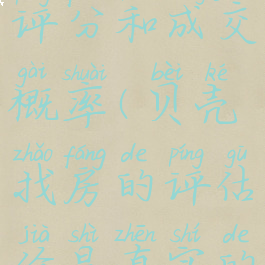 评分和成交
gài shuài bèi ké
概率(贝壳
zhǎo fáng de píng gū
找房的评估
jià shì zhēn shí de
价是真实的